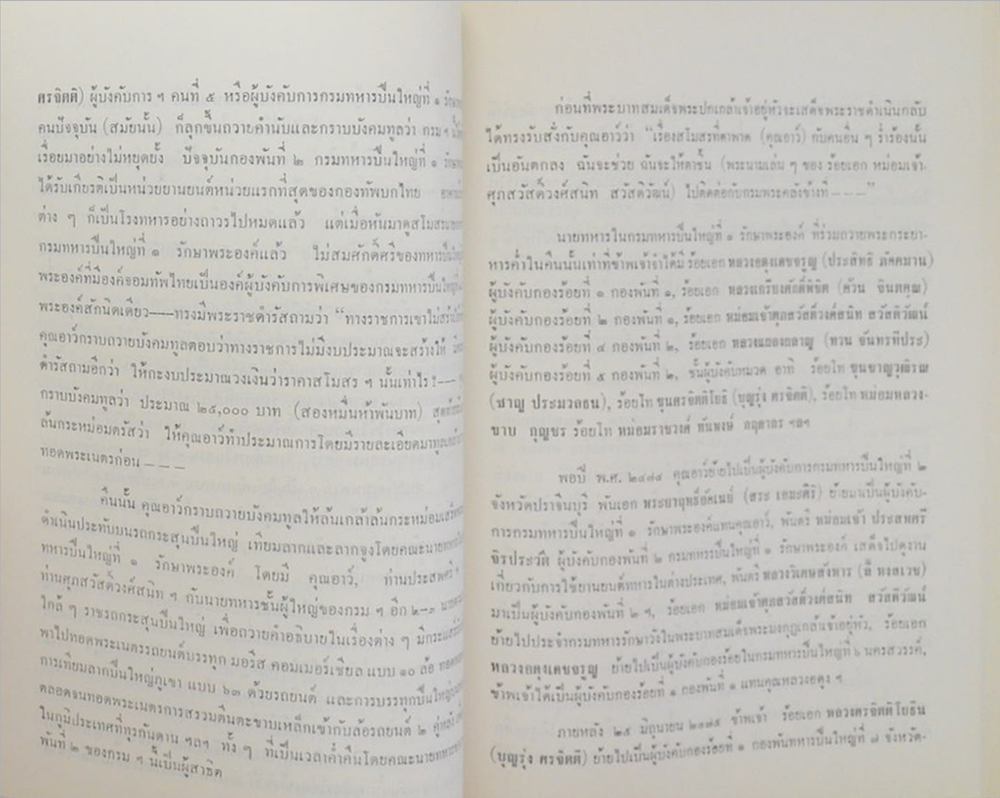 ศรจิตติ) ผู้บังคับการ ฯ คนที่ ๕ หรือผู้บังคับการกรมทหารปืนใหญ่ที่ ๑
คนปัจจุบัน (สมัยนั้น) ก็ลุกขึ้นถวายคำนับและกราบบังคมทูลว่า กรม ฯ
เรื่อยมาอย่างไม่หยุดยั้ง ปัจจุบันกองพันที่ ๒ กรมทหารปืนใหญ่ที่ ๑
ได้รับเกียรติเป็นหน่วยยานยนต์หน่วยแรกที่สุดของกองทัพบกไทย
ต่าง ๆ ก็เป็นโรงทหารอย่างถาวรไปหมดแล้ว แต่เมื่อหันมาดูสโมสร
กรมทหารปืนใหญ่ที่ ๑ รักษาพระองค์แล้ว ไม่สมศักดิ์ศรีของทหารปืนใหญ่
พระองค์ที่มีองค์จอมทัพไทยเป็นองค์ผู้บังคับการพิเศษของกรมทหารปืนใหญ่
พระองค์สักนิดเดียว---ทรงมีพระราชดำรัสถามว่า "ทางราชการเขาไม่สร้าง
คุณอาว์กราบถวายบังคมทูลตอบว่าทางราชการไม่มีงบประมาณจะสร้างให้
ดำรัสถามอีกว่า ให้กะงบประมาณวงเงินว่าราคาสโมสร ฯ นั้นเท่าไร ?--
กราบบังคมทูลว่า ประมาณ ๒๕,๐๐๐ บาท (สองหมื่นห้าพันบาท)
ล้นกระหม่อมตรัสว่า ให้คุณอาว์ทำประมาณการโดยมีรายละเอียดมา
ทอดพระเนตรก่อน ---
คืนนั้น คุณอาว์กราบถวายบังคมทูลให้ล้นเกล้าล้นกระหม่อม
ดำเนินประทับบนรถกระสุนปืนใหญ่ เทียมลากและลากจูงโดยคณะนายทหาร
ทหารปืนใหญ่ที่ ๑ รักษาพระองค์ โดยมี คุณอาว์, ท่านประสพศรี ฯ
ท่านศุภสวัสดิ์วงศ์สนิท ฯ กับนายทหารชั้นผู้ใหญ่ของกรม ฯ อีก ๒-๓
ใกล้ ๆ ราชรถกระสุนปืนใหญ่ เพื่อถวายคำอธิบายในเรื่องต่าง ๆ มีกระแส
พาไปทอดพระเนตรรถยนต์บรรทุก มอริส คอมเมอร์เซียล แบบ ๑๐ ล้อ
การเทียมลากปืนใหญ่ภูเขา แบบ ๖๓ ด้วยรถยนต์ และการบรรทุกปืนใหญ่
ตลอดจนทอดพระเนตรการสรวมตีนตะขาบเหล็กเข้ากับล้อรถยนต์ ๒ คู่หลัง
ในภูมิประเทศที่ทุรกันดาน ฯลฯ ทั้ง ๆ ที่เป็นเวลาค่ำคืนโดยคณะนายทหาร
พันที่ ๒ ของกรม ฯ นี้เป็นผู้สาธิต
ก่อนที่พระบาทสมเด็จพระปกเกล้าเจ้าอยู่หัวจะเสด็จพระราชดำเนินกลับ
ได้ทรงรับสั่งกับคุณอาว์ว่า "เรื่องสโมสรที่ตาพาด (คุณอาว์) กับคนอื่น ๆ ร่ำร้องนั้น
เป็นอันตกลง ฉันจะช่วย ฉันจะให้ตาชิ้น (พระนามเล่น ๆ ของ ร้อยเอก หม่อมเจ้า
ศุภสวัสดิ์วงศ์สนิท สวัสดิวัฒน์) ไปติดต่อกับกรมพระคลังข้างที่ ---"
นายทหารในกรมทหารปืนใหญ่ที่ ๑ รักษาพระองค์ ที่ร่วมถวายพระกระยา-
หารค่ำในคืนนั้นเท่าที่ข้าพเจ้าจำได้มี ร้อยเอก หลวงดุงเดชจรูญ (ประสิทธิ์ ภัคคมาน)
ผู้บังคับกองร้อยที่ ๑ กองพันที่ ๑, ร้อยเอก หลวงเกรียงศักดิ์พิชิต (ด้วน จินตคุณ)
ผู้บังคับกองร้อยที่ ๒ กองพันที่ ๑, ร้อยเอก หม่อมเจ้าศุภสวัสดิ์วงศ์สนิท สวัสดิวัฒน์
ผู้บังคับกองร้อยที่ ๔ กองพันที่ ๒, ร้อยเอก (หวน จันทรทีประ)
ผู้บังคับกองร้อยที่ ๕ กองพันที่ ๒, ชั้นผู้บังคับหมวด อาทิ ร้อยโท ขุนชาญวุฒิรณ
(ชาญ ประมวลธน), ร้อยโท ขุนศรจิตติโยธิ (บุญรุ่ง ศรจิตติ), ร้อยโท หม่อมหลวง
ขาบ กุญชร ร้อยโท หม่อมราชวงศ์ พันพงษ์ กฤดากร ฯลฯ
พอปี พ.ศ. ๒๔๗๔ คุณอาว์ย้ายไปเป็นผู้บังคับการกรมทหารปืนใหญ่ที่ ๒
จังหวัดปราจีนบุรี พันเอก พระยาฤทธิอัคเนย์ (สละ เอมะศิริ) ย้ายมาเป็นผู้บังคับ-
การกรมทหารปืนใหญ่ที่ ๑ รักษาพระองค์แทนคุณอาว์, พันตรี หม่อมเจ้า ประสพศรี
จิรประวัติ ผู้บังคับกองพันที่ ๒ กรมทหารปืนใหญ่ที่ ๑ รักษาพระองค์ เสด็จไปดูงาน
เกี่ยวกับการใช้ยานยนต์ทหารในต่างประเทศ, พันตรี หลวงวิเศษสังหาร (ลี หงสเวช)
มาเป็นผู้บังคับกองพันที่ ๒ ฯ, ร้อยเอก หม่อมเจ้าศุภสวัสดิ์วงศ์สนิท สวัสดิวัฒน์
ย้ายไปประจำกรมทหารรักษาวังในพระบาทสมเด็จพระมงกุฎเกล้าเจ้าอยู่หัว, ร้อยเอก
หลวงดุงเดชจรูญ ย้ายไปเป็นผู้บังคับกองร้อยในกรมทหารปืนใหญ่ที่ ๖ นครสวรรค์,
ข้าพเจ้าได้เป็นผู้บังคับกองร้อยที่ ๑ กองพันที่ ๑ แทนคุณหลวงดุง ฯ
ภายหลัง ๒๕ มิถุนายน ๒๔๗๕ ข้าพเจ้า ร้อยเอก หลวงศรจิตติโยธิน
(บุญรุ่ง ศรจิตติ) ย้ายไปเป็นผู้บังคับกองร้อยที่ ๑ กองพันทหารปืนใหญ่ที่ ๘ จังหวัด-